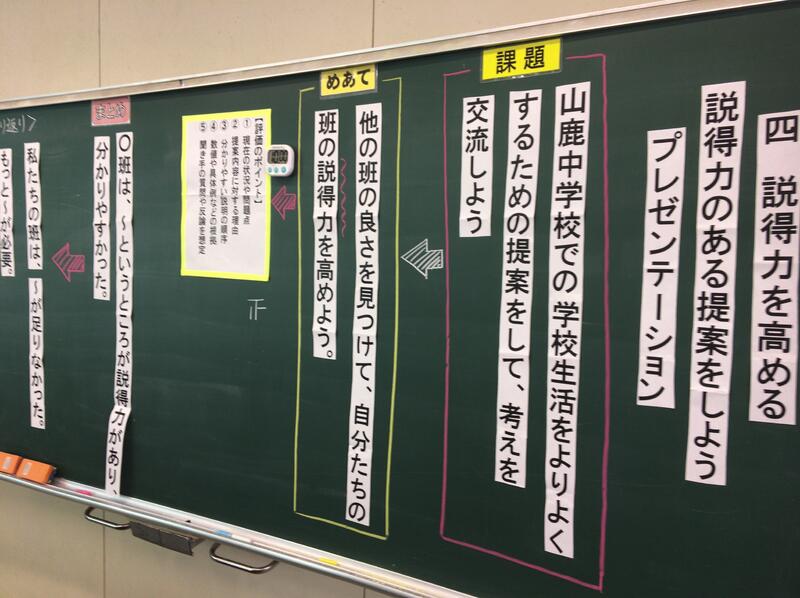 四 説得力を高める
説得力のある提案をしよう
プレゼンテーション
課題
山鹿中学校での学校生活をよりよく
するための提案をして、考えを
交流しよう
めあて
他の班の良さを見つけて、自分たちの
班の説得力を高めよう。
【評価のポイント】
① 現在の状況や問題点
② 提案内容に対する理由
③ 分かりやすい説明の順序
④ 数値や具体例などの根拠
⑤ 聞き手の質問や反論を想定
10:00
正
まとめ
〇班は、～というところが説得力があり、
分かりやすかった。
り返り＞
私たちの班は、～が足りなかった。
もっと～が必要。